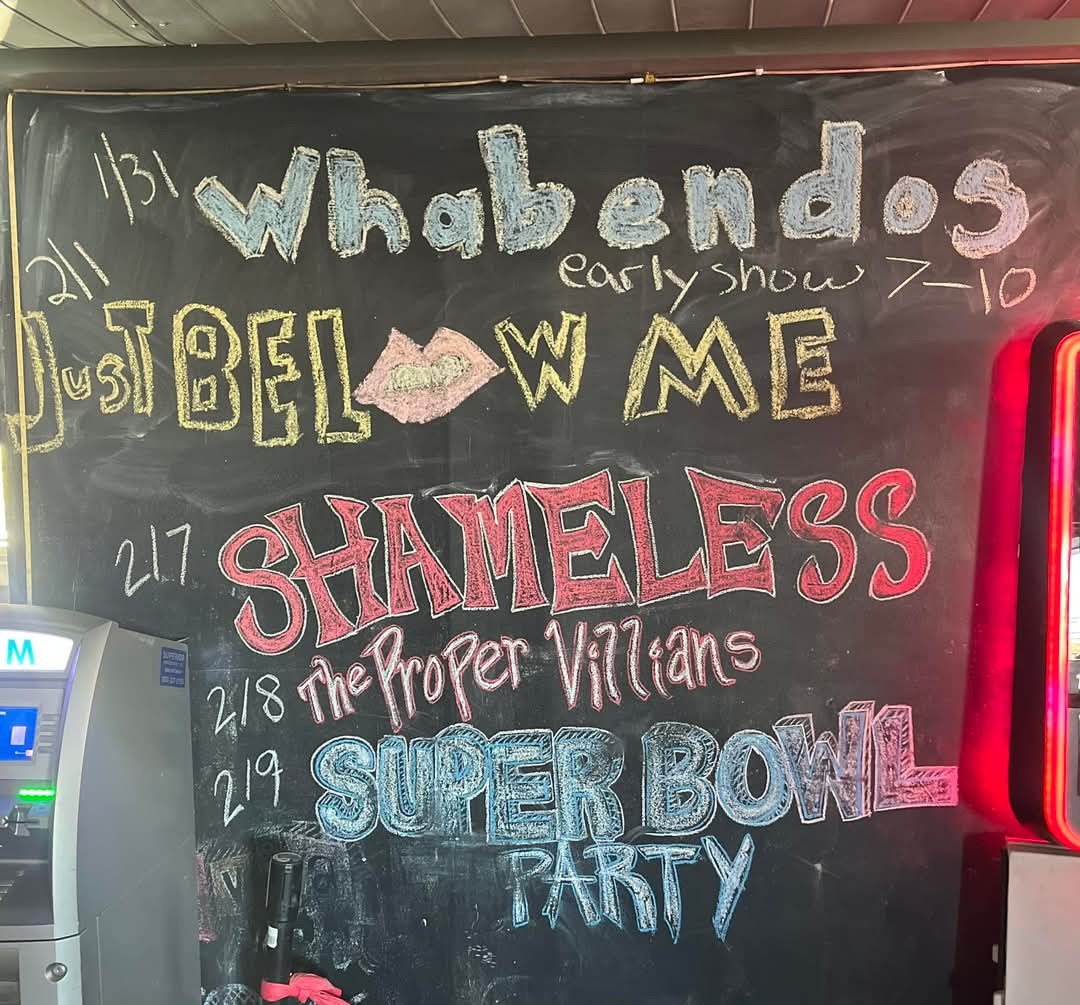 1/31 Whabendos
early show 7-10
2/1
JusT BELOW ME
2/7 SHAMELESS
2/8 The Proper Villians
2/9 SUPER BOWL
PARTY
M